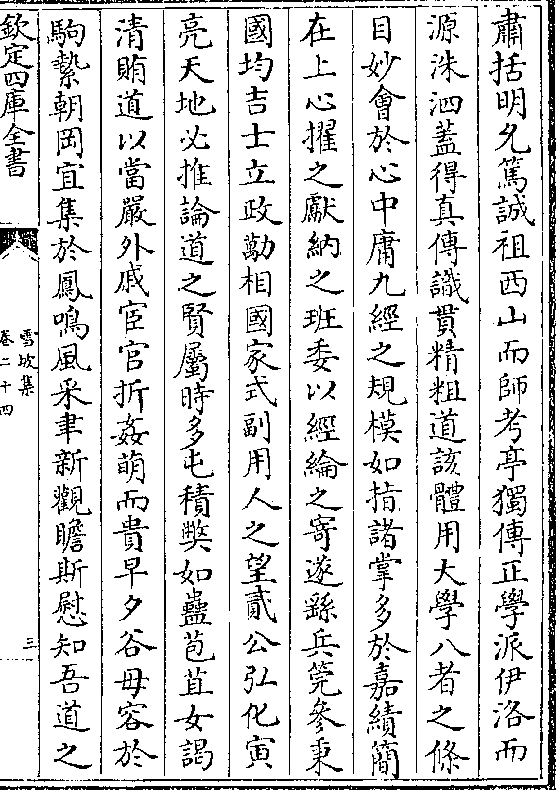 肅括明允篤誠祖西山而師考亭獨傳正學派伊洛而
源洙泗蓋得真傳識貫精粗道該體用大學八者之條
目妙會於心中庸九經之規模如指諸掌多於嘉績簡
在上心擢之獻納之班委以經綸之寄遂繇兵筦參秉
國均吉士立政勱相國家式副用人之望貳公弘化寅
亮天地必推論道之賢屬時多屯積弊如蠱苞苴女謁
清賄道以當嚴外戚宦官折姦萌而貴早夕谷毋容於
駒縶朝岡宜集於鳳鳴風采聿新觀瞻斯慰知吾道之
欽定四庫全書
雪坡集
卷二十四
三